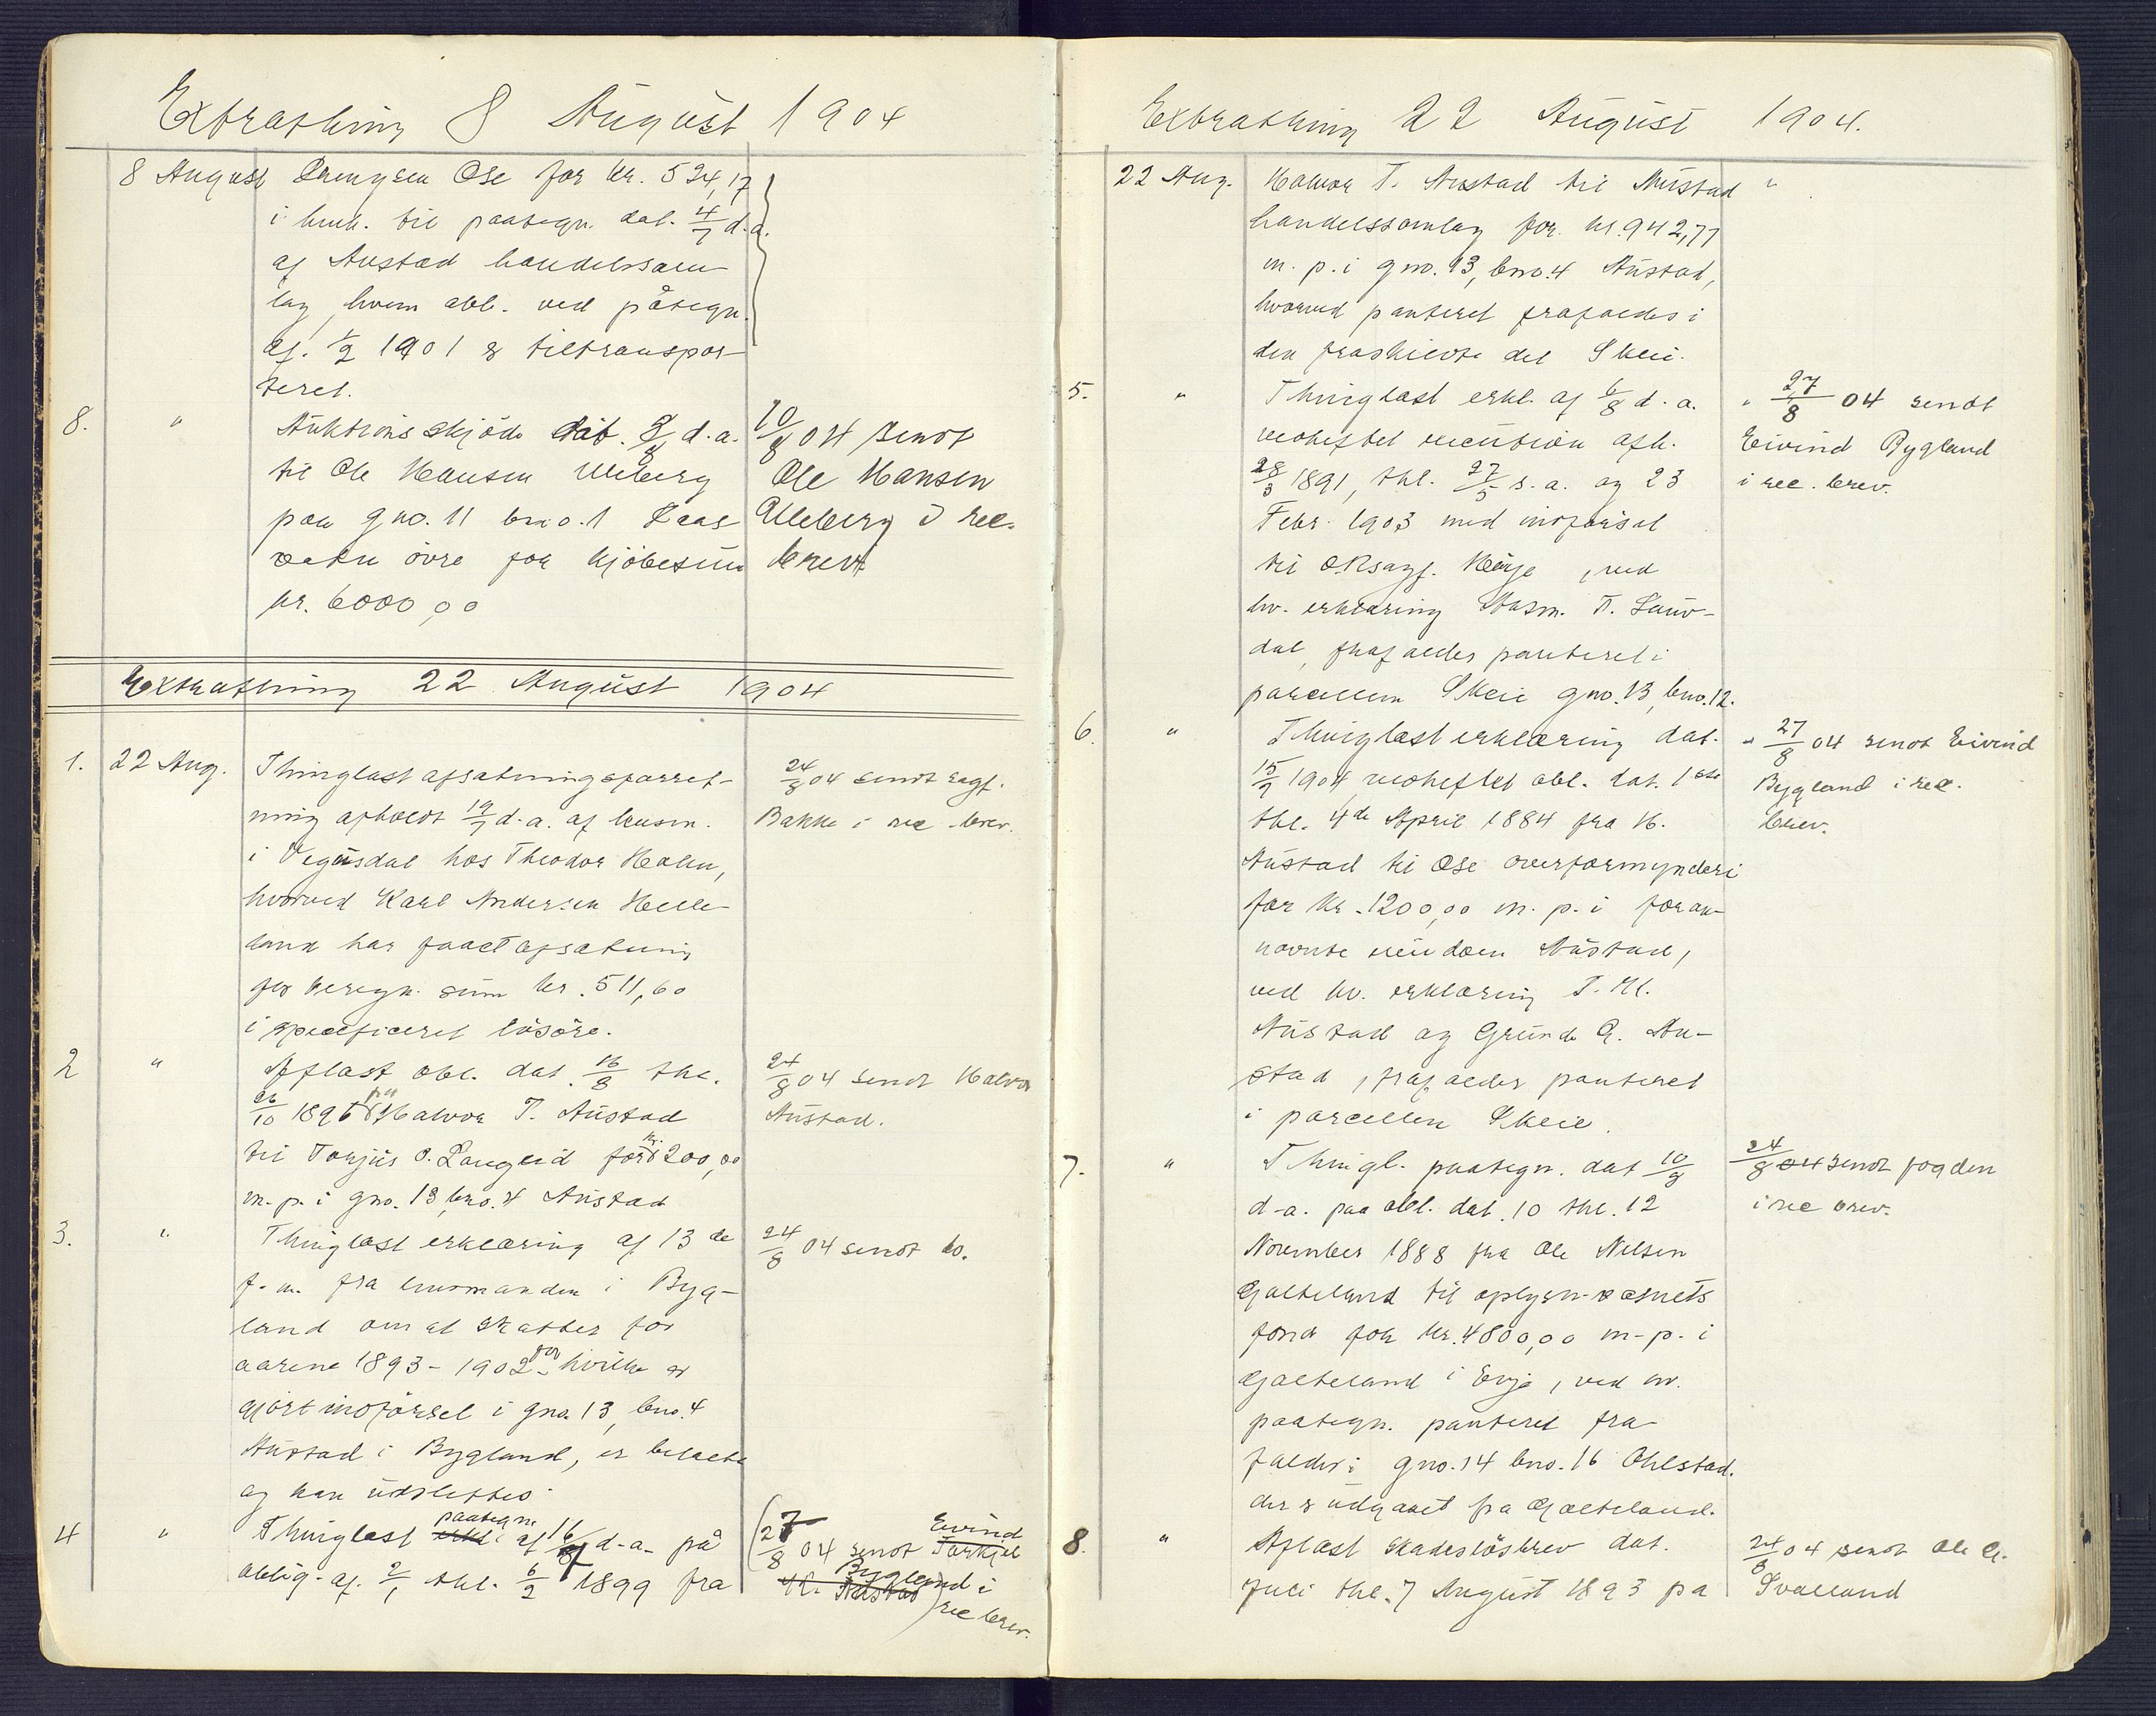 Extrathing 8 August 1904
8 August Ose for kr. 524,17
i henh. til paategn. dat. 4/7 d. a.
af Austad handelssam-
lag, hvem obl. ved påtegn.
af 1/2 1901 er tiltranspor-
teret.
8. " Auktionsskjøde dat. 8/8 d. a. 10/8 04 sendt
til Ole Hansen Uleberg Ole Hansen
paa gno. 11 bno. 1 Uleberg i rec.
øvre for kjøbesum brev
kr. 6000,00
Extrathing 22 August 1904
1. 22 Aug. Thinglæst afsætningsforret- 24/8 04 sendt sagf.
ning afholdt 19/7 d. a. af lensm. Bakke i rec. brev.
i Vegusdal hos Theodor Holen,
hvorved Karl Andersen Helle-
land har faaet afsætning
for beregn. sum kr. 511,60
i specificeret løsøre.
2 " Aflæst obl. dat. 16/8 thl. 24/8 04 sendt Halvor
26/10 1896 fra Halvor T. Austad Austad.
til Torjus O. Langeid for kr. 200,00
m. p. i gno. 13, bno. 4 Austad
3. " Thinglæst erklæring af 13de 24/8 04 sendt do.
f. m. fra lensmanden i Byg-
land om at skatter for
aarene 1893 - 1902, for hvilke er
gjort indførsel i gno. 13, bno. 4
Austad i Bygland, er betalte
og kan udslettes.
4 " Thinglæst erkl. paategn. af 16/8 d. a. på (27/8 04 sendt Torkjel Eivind
oblig. af 2/1 thl. 6/2 1899 fra H. Austad Bygland i
rec brev.)
Extrathing 22 August 1904.
22 Aug. Halvor T. Austad til Austad "
handelssamlag for kr. 942,77
m. p. i gno. 13, bno. 4 Austad,
hvorved panteret frafaldes i
den fraskilte del Skeie.
5. " Thinglæst erkl. af 6/8 d. a. " 27/8 04 sendt
vedheftet execution afh. Eivind Bygland
28/3 1891, thl. 27/5 s. a. og 23 i rec. brev.
Febr. 1903 med indførsel
til O.Rsagf. , ved
hv. erklæring T. Lauv-
dal, frafaldes panteret i
parcellen Skeie gno. 13, bno. 12.
6. " Thinglæst erklæring dat. " 27/8 04 sendt Eivind
15/7 1904, vedheftet obl. dat. 1ste Bygland i rec.
thl. 4de April 1884 fra H. brev.
Austad til Ose overformynderi
for kr. 1200,00 m. p. i foran-
nævnte eiendom Austad,
ved hv. erklæring T. H.
Austad og Grunde G. Au-
stad, frafaldes panteret
i parcellen Skeie.
7. " Thingl. paategn. dat 10/8 24/8 04 sendt fogden
d. a. paa obl. dat. 10 thl. 12 i rec brev.
November 1888 fra Ole Nilsen
Galteland til oplysn.væsnets
fond for kr. 4800,00 m. p. i
Galteland i Evje, ved hv.
paategn. panteret fra-
faldes i gno. 14 bno. 16 Ohlstad.
der er udgaaet fra Galteland.
8. " Aflæst skadesløsbrev dat. 24/8 04 sendt Ole
Juli thl. 7 August 1893 fra